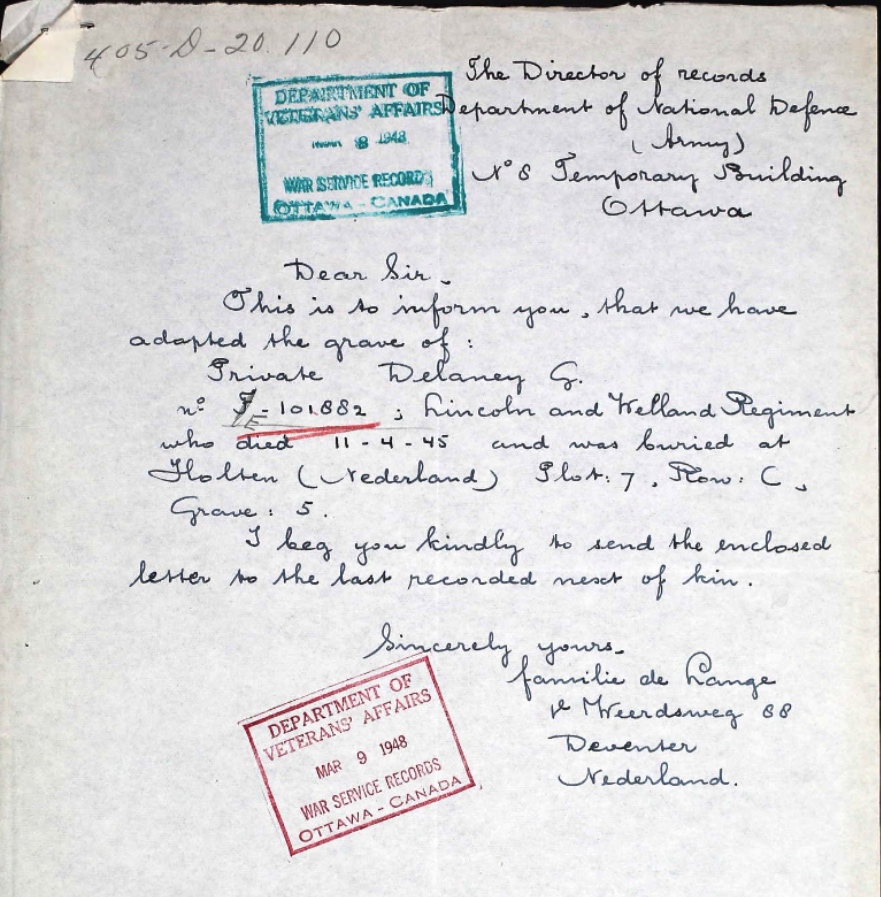 405-D-20.110
The Director of records
Department of National Defence
(Army)
N° 8 Temporary Building
Ottawa
DEPARTMENT OF
VETERANS' AFFAIRS
8 1948
WAR SERVICE RECORDS
OTTAWA - CANADA
Dear Sir.
This is to inform you, that we have
adopted the grave of:
Private Delaney G.
n° -101.882 ; Lincoln and Welland Regiment
who died 11-4-45 and was buried at
Holten (Nederland) Plot: 7, Row: C,
Grave: 5.
I beg you kindly to send the enclosed
letter to the last recorded next of kin.
Sincerely yours.
familie de Lange
Weerdsweg 88
Deventer
Nederland.
DEPARTMENT OF
VETERANS' AFFAIRS
MAR 9 1948
WAR SERVICE RECORDS
OTTAWA - CANADA